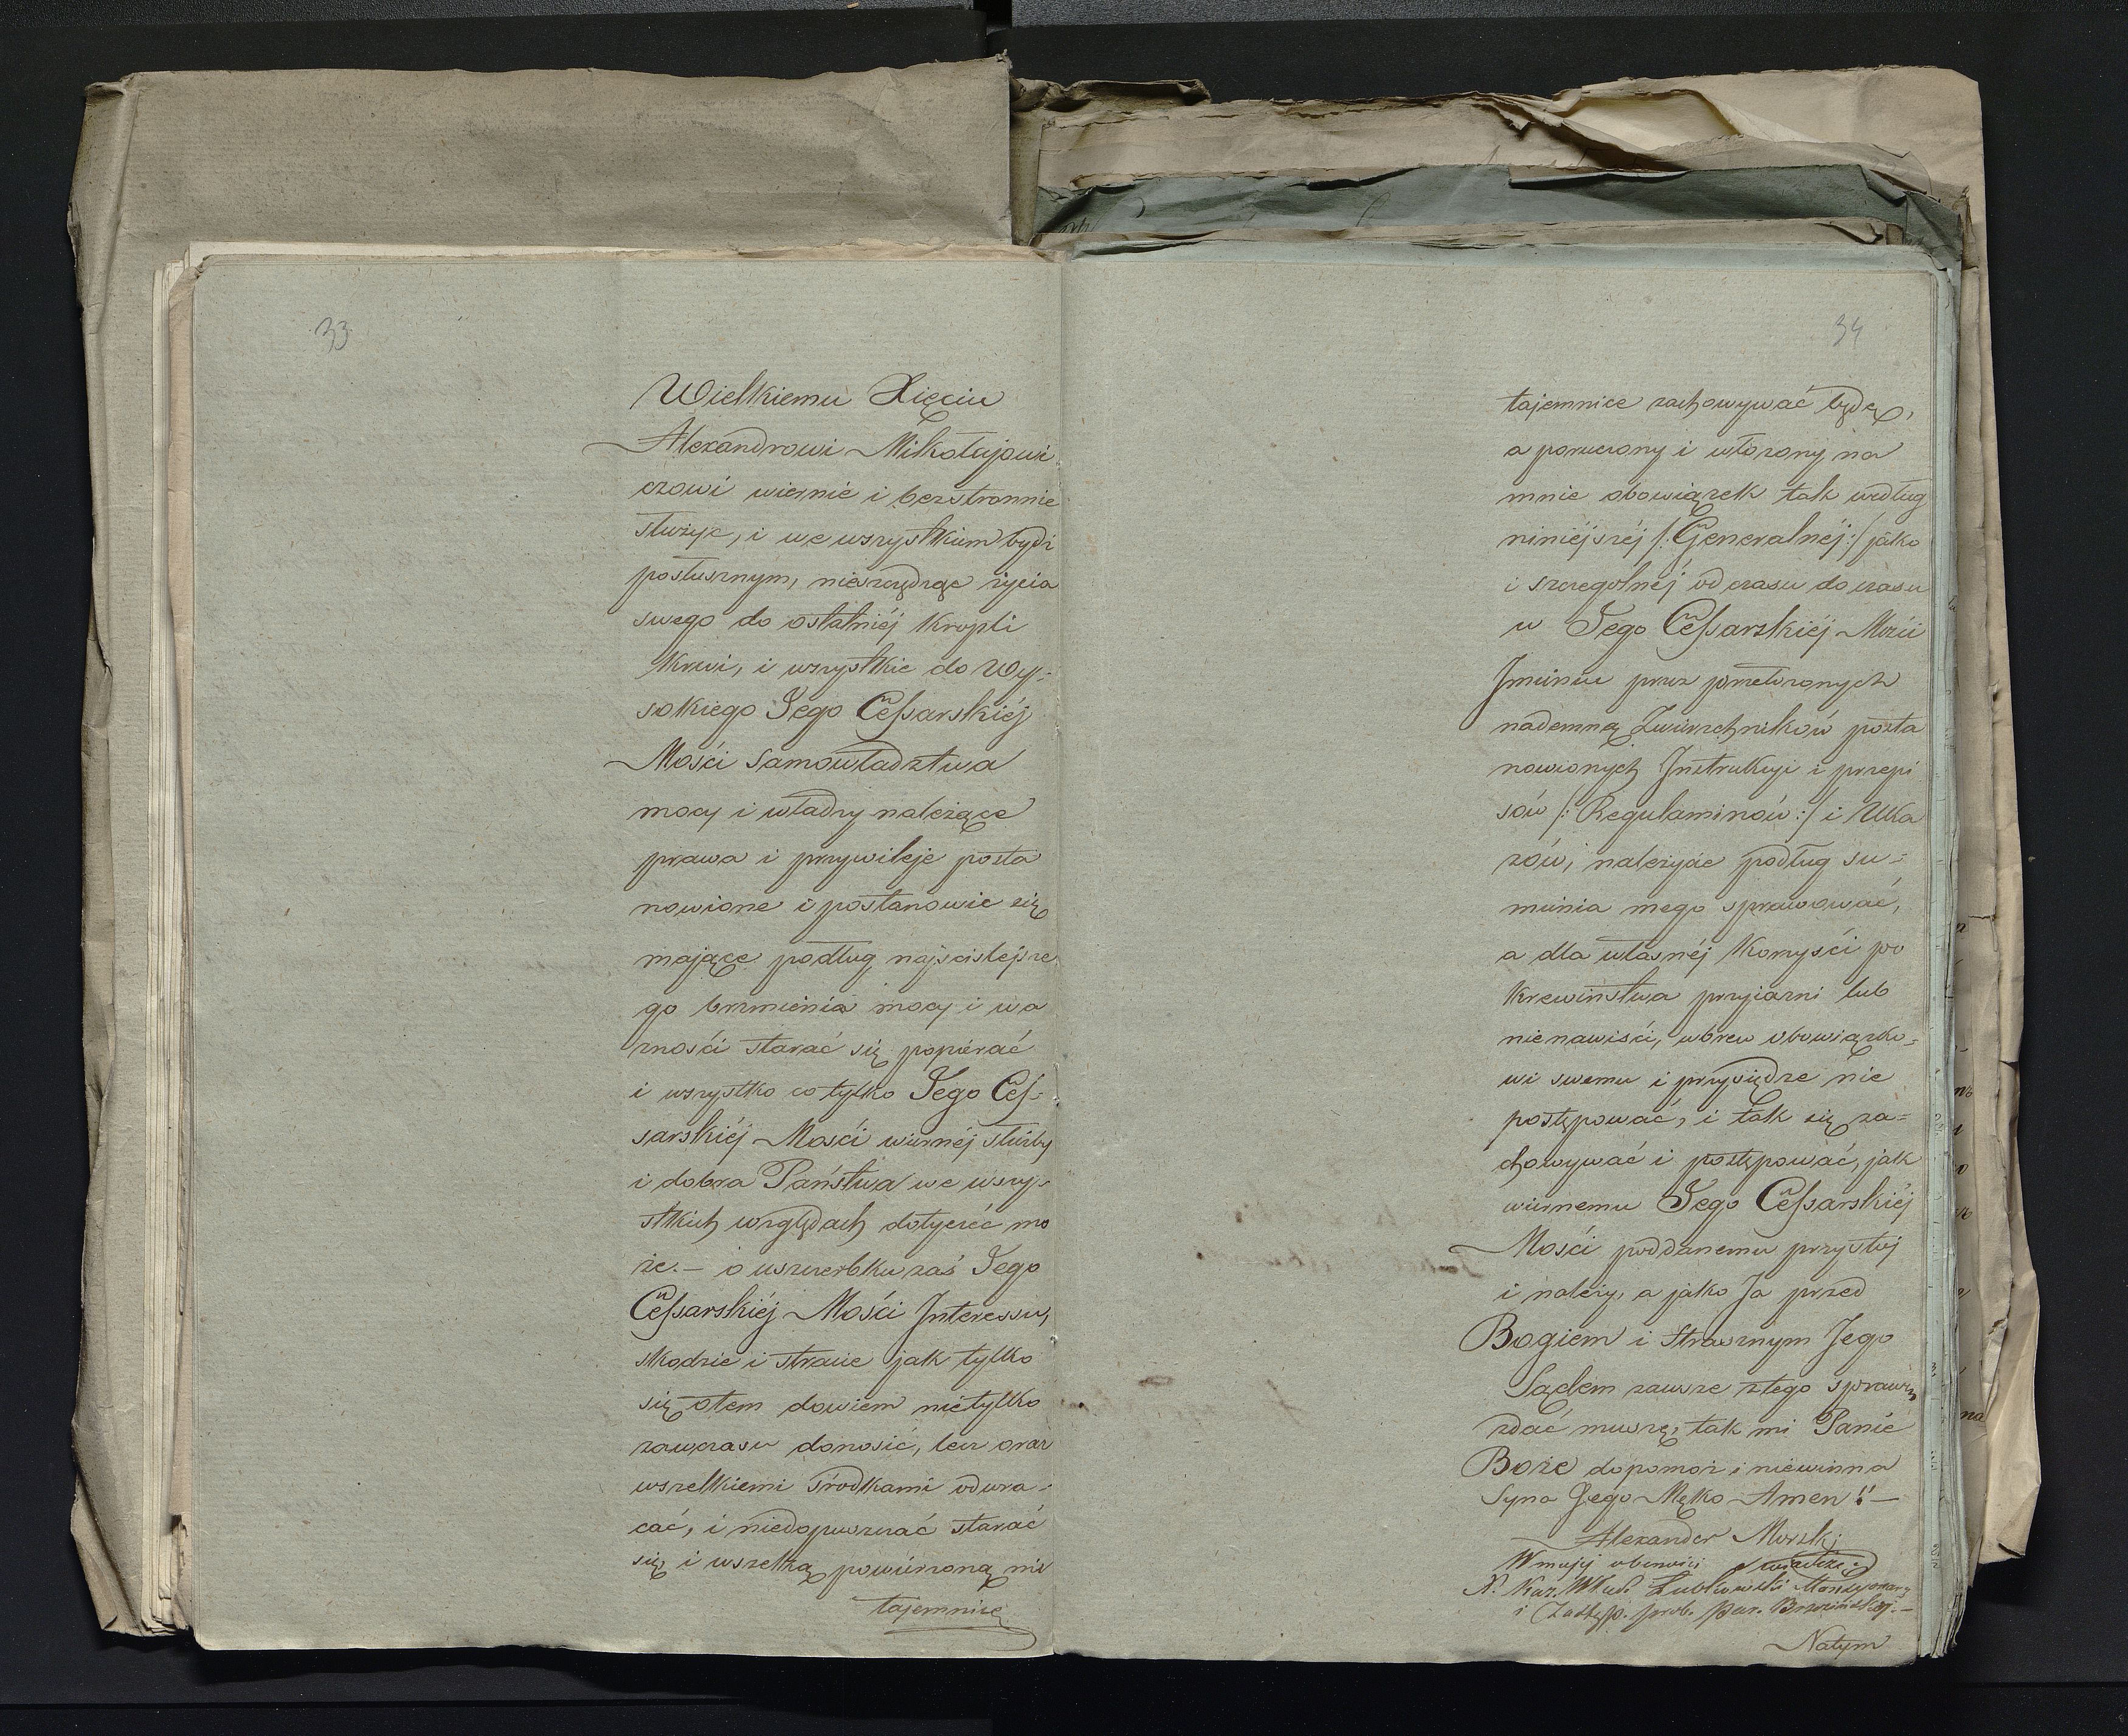 33
Wielkiemu Xięciu
Alexandrowi Mikołajowi
czowi wiernie i bezstronnie
służyć, i we wszystkiem bydź
posłusznym, nieszczędząc życia
swego do ostatniéj kropli
krwi, i wszystkie do Wy=
sokiego Jego Cessarskiéj
Mości samowładztwa
mocy i władzy należące
prawa i przywileje posta
nowione i postanowić się
mające podług najściślejsze
go brzmienia mocy i wa
żności starać się popiérać
i wszystko co tylko Jego Ces=
sarskiéj Mości wiernéj służby
i dobra Państwa we wszy=
stkich względach dotyczéć mo
że. — o uszczerbku zaś Jego
Cessarskiéj Mości Interessu,
szkodzie i stracie jak tylko
się otem dowiem nietylko
zawczasu donosić, lecz oraz
wszelkiemi środkami odwra=
cać, i niedopuszczać starać
się, i wszelką powierzoną mi
tajemnicę
34
tajemnice zachowywać będę,
a poruczony i włożony na
mnie obowiązek tak według
niniéjszéj /: Generalnéj :/ jako
i szczegolnéj od czasu do czasu
w Jego Cessarskiéj Mości
Jmieniu przez przełożonych
nademną Zwierzchników posta
nowionych Instrukcyi i przepi
sów /: Regulaminów :/ i Uka
zów, należycie podług su=
mienia mego sprawować,
a dla własnéj korzyści po
krewieństwa przyjaźni lub
nienawiści, wbrew obowiązko=
wi swemu i przysiędze nie
postępować, i tak się za=
chowywać i postępować, jak
wiernemu Jego Cessarskiéj
Mości poddanemu przystoj
i należy, a jako Ja przed
Bogiem i Strasznym Jego
Sądem zawsze ztego sprawę
zdać muszę, tak mi Panie
Boże dopomoż i niewinna
Syna Jego Męko Amen!! —
Alexander Morski
W mojej obecności świadczę
X. Kaz. Mansyonarz
i Zastęp. prob. par.
Natym